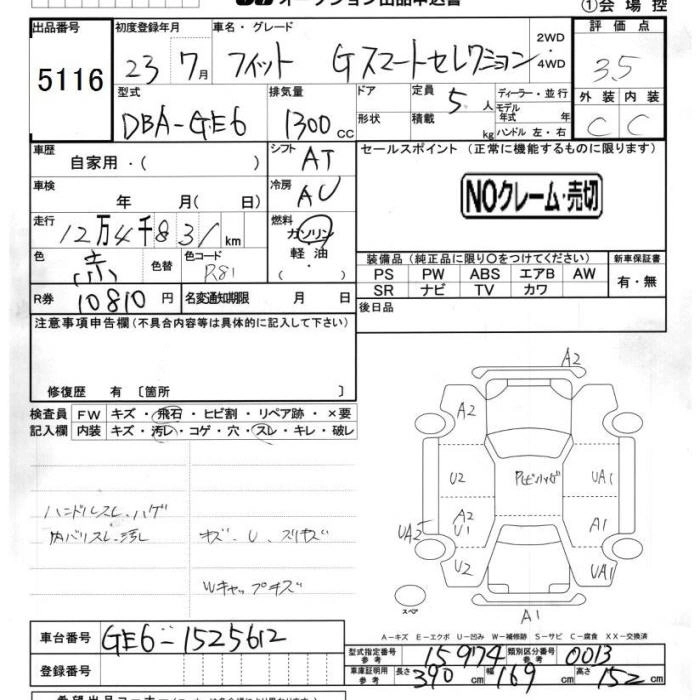 オークション出品申込書
①会場控
出品番号 初度登録年月 車名・グレード 2WD 評価点
5116 23 7月 フィット Gスマートセレクション ・4WD 3.5
型式 排気量 ドア 定員 ディーラー・並行 外装 内装
DBA-GE6 1300cc 5人 モデル年式 年式 C C
形状 積載 kg ハンドル 左・右
車歴 シフト セールスポイント(正常に機能するものに限ります)
自家用・( ) AT
車検 冷房
年 月( 日) NOクレーム・売切
走行 燃料
12万4千831km ガソリン
色 色替 色コード 軽油 装備品(純正品に限り○をつけてください) 新車保証書
赤 R81 ( ・ ) PS PW ABS エアB AW 有・無
SR ナビ TV カワ
R券 10810円 名変通知期限 月 日 後日品
注意事項申告欄(不具合内容等は具体的に記入して下さい)
修復歴 有 〔箇所 〕
検査員 FW キズ・飛石・ヒビ割・リペア跡・×要
記入欄 内装 キズ・汚レ・コゲ・穴・スレ・キレ・破レ
A2
A2
U2 UA1
ハンドルスレ・ハゲ
内バリスレ・汚レ キズ・U・スリキズ
UA2 A2 U1 A1
U2 UA1
Wキャップキズ
スペア
A1
A−キズ E−エクボ U−凹み W−補修跡 S−サビ C−腐食 XX−交換済
車台番号 GE6-1525612
型式指定番号 参考 15974 類別区分番号 参考 0013
登録番号 車庫証明用 参考 長さ 390cm 幅 169cm 高さ 152cm